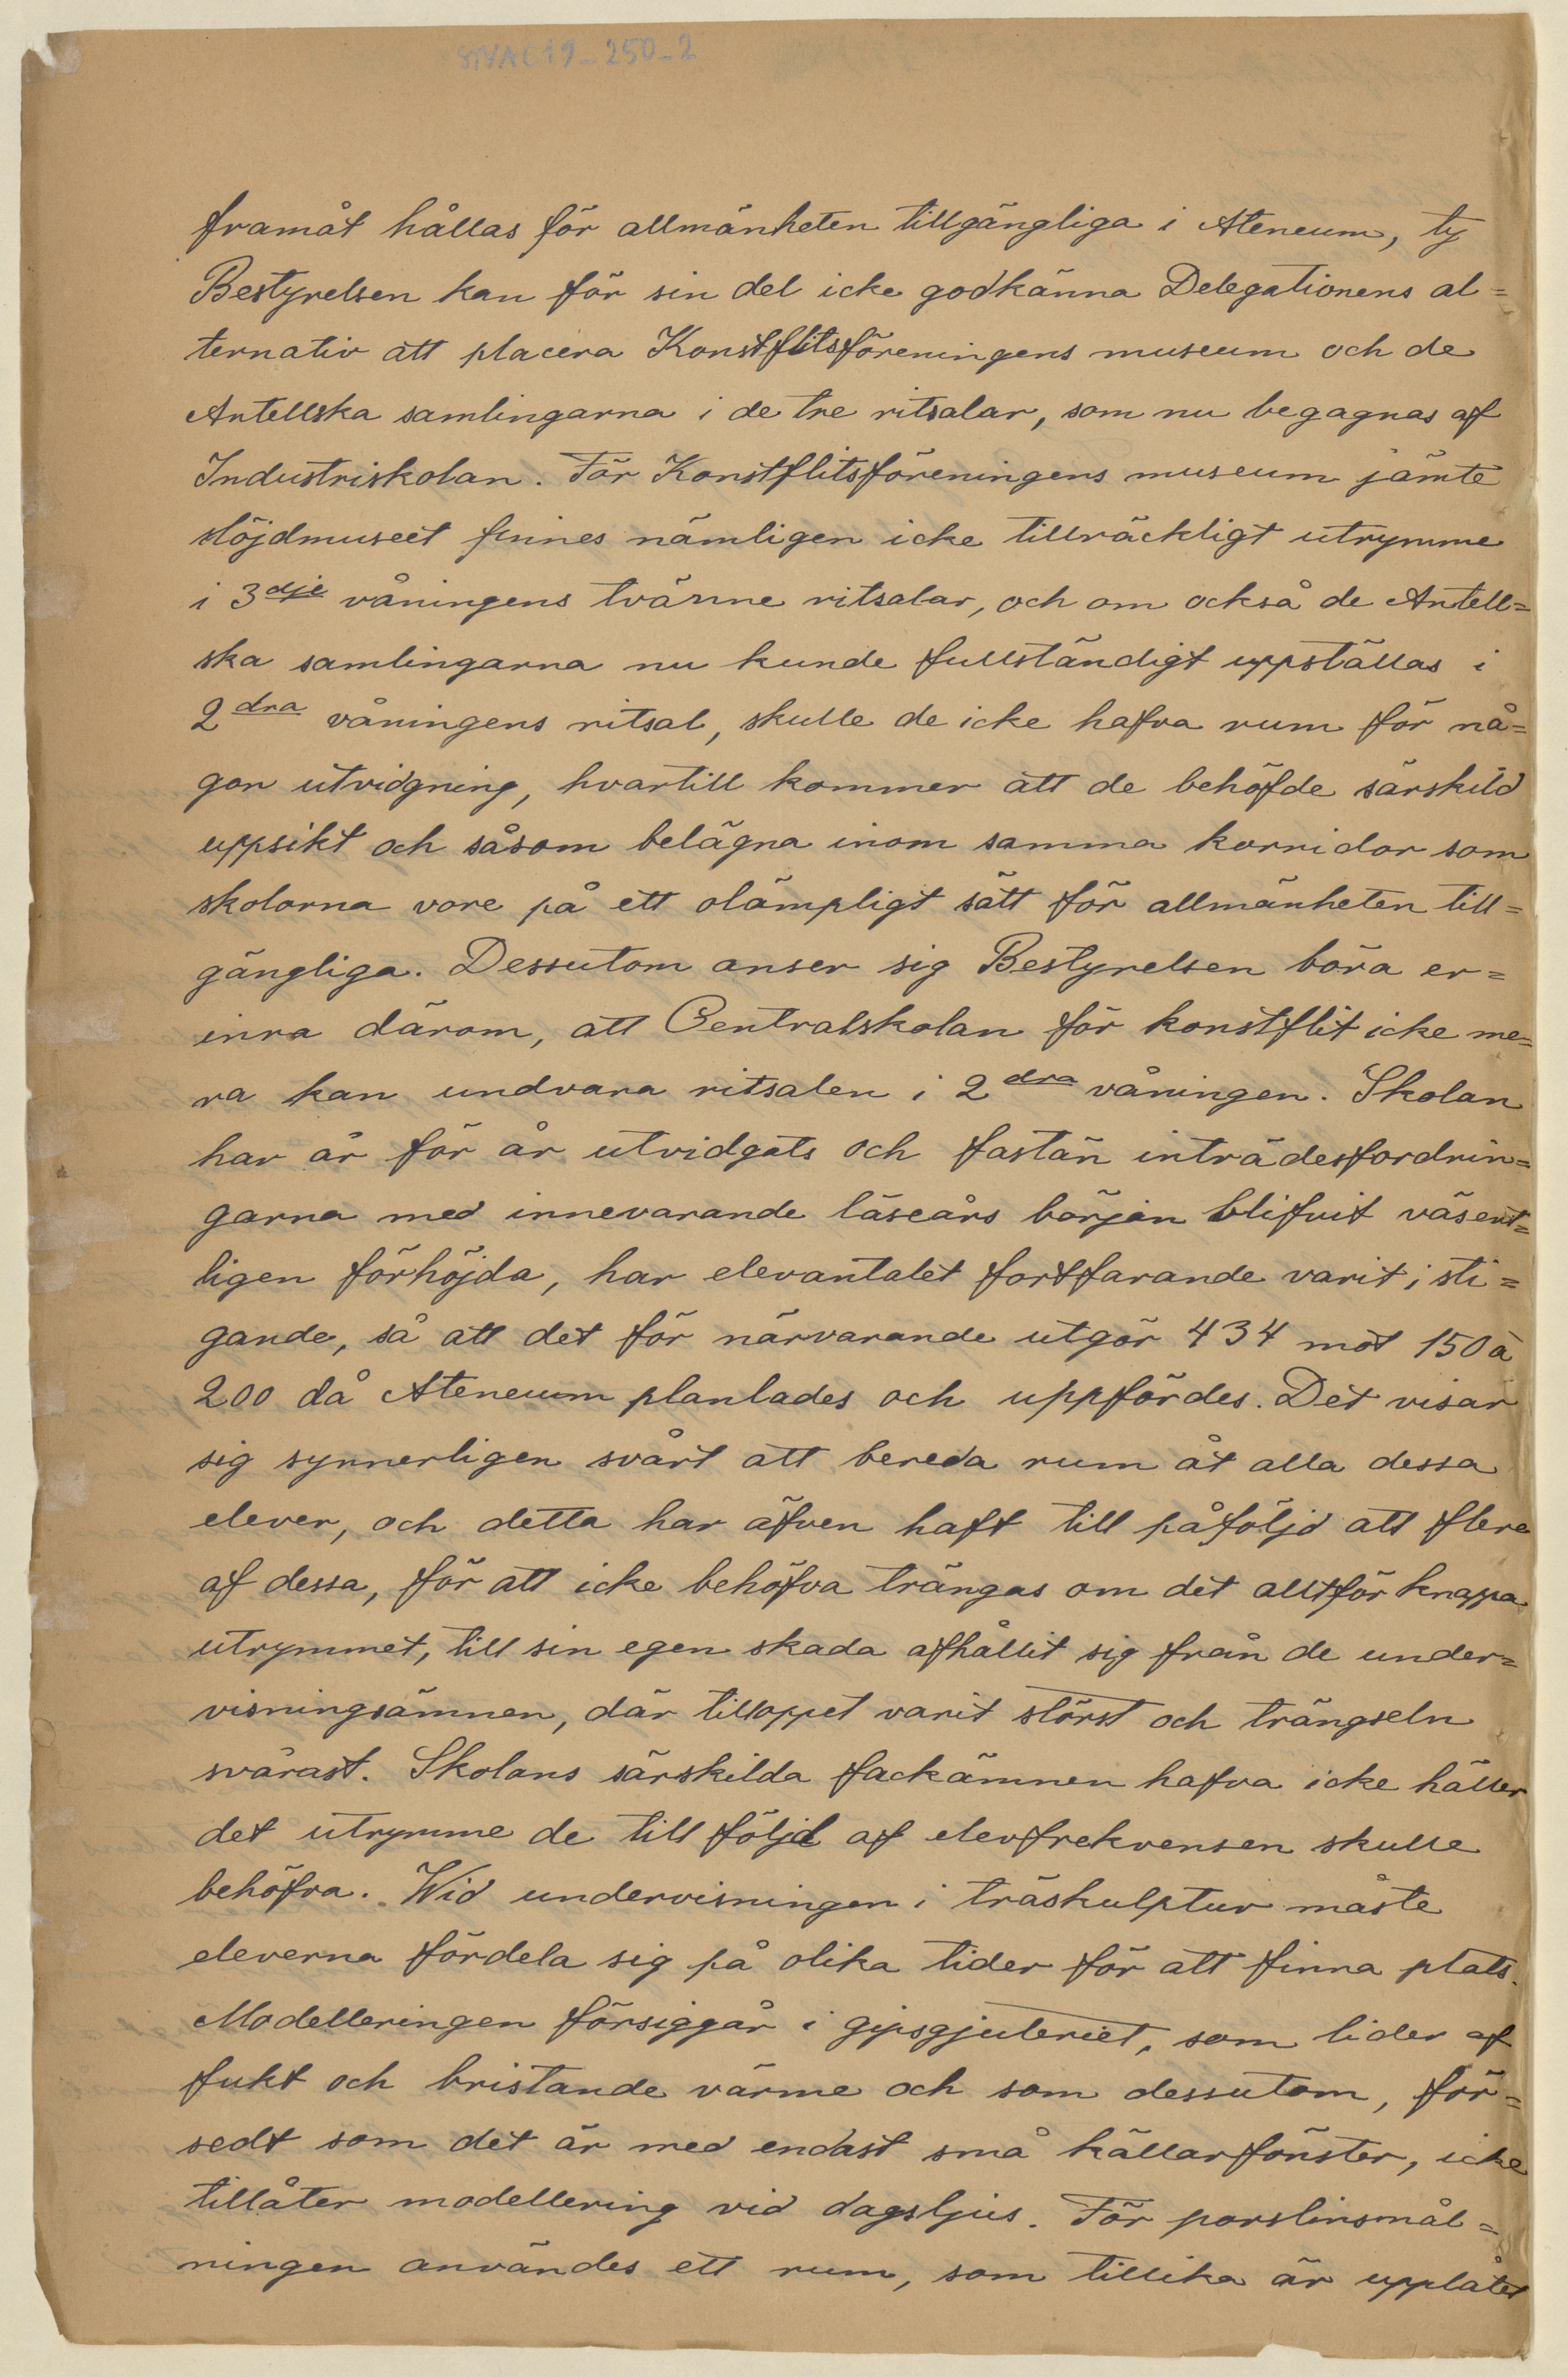 framåt hållas för allmänheten tillgängliga i Ateneum, ty
Bestyrelsen kan för sin del icke godkänna Delegationens al=
ternativ att placera Konstflitsföreningens museum och de
Antellska samlingarna i de tre ritsalar, som nu begagnas af
Industriskolan. För Konstflitsföreningens museum jämte
slöjdmuseet finnes nämligen icke tillräckligt utrymme
i 3dje våningens tvänne ritsalar, och om också de Antell=
ska samlingarna nu kunde fullständigt uppställas i
2dra våningens ritsal, skulle de icke hafva rum för nå=
gon utvidgning, hvartill kommer att de behöfde särskild
uppsikt och såsom belägna inom samma korridor som
skolorna vore på ett olämpligt sätt för allmänheten till=
gängliga. Dessutom anser sig Bestyrelsen böra er=
inra därom, att Centralskolan för konstflit icke me=
ra kan undvara ritsalen i 2dra våningen. Skolan
har år för år utvidgats och fastän inträdesfordrin=
garna med innevarande läseårs början blifvit väsent=
ligen förhöjda, har elevantalet fortfarande varit i sti=
gande, så att det för närvarande utgör 434 mot 150 à
200 då Ateneum planlades och uppfördes. Det visar
sig synnerligen svårt att bereda rum åt alla dessa
elever, och detta har äfven haft till påföljd att flere
af dessa, för att icke behöfva trängas om det alltför knappa
utrymmet, till sin egen skada afhållit sig från de under=
visningsämnen, där tilloppet varit störst och trängseln
svårast. Skolans särskilda fackämnen hafva icke häller
det utrymme de till följd af elevfrekvensen skulle
behöfva. Wid undervisningen i träskulptur måste
eleverna fördela sig på olika tider för att finna plats.
Modelleringen försiggår i gipsgjuteriet, som lider af
fukt och bristande värme och som dessutom, för=
sedt som det är med endast små källarfönster, icke
tillåter modellering vid dagsljus. För porslinsmål=
ningen användes ett rum, som tillika är upplåtet